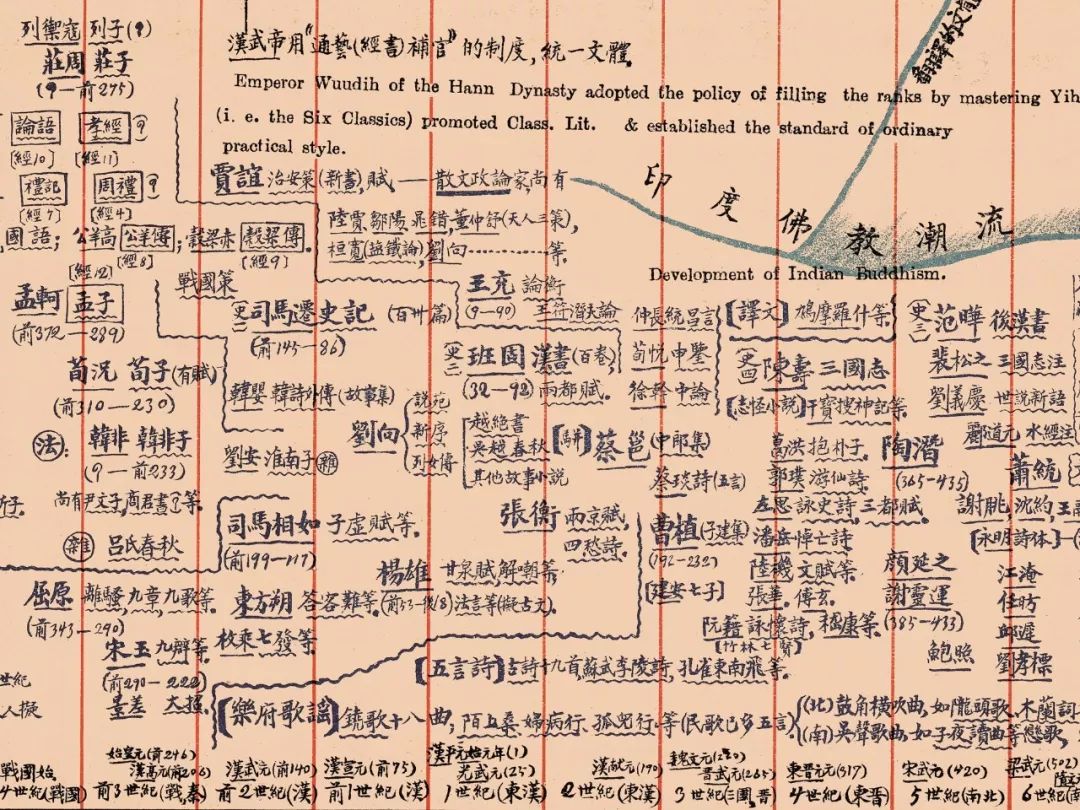 列禦寇 列子(?)
莊周 莊子
(?—前275)
論語 孝經 ?
[經10] [經11]
禮記 周禮 ?
[經7] [經4]
國語; 公羊高 公羊傳; 穀梁赤 穀梁傳.
[經8] [經9]
[經12]
戰國策
孟軻 孟子
(前372—289)
荀況 荀子(有賦)
(前310—230)
法: 韓非 韓非子
(?—前233)
尚有尹文子,商君書?等.
雜 呂氏春秋
屈原 離騷,九章,九歌等.
(前343—290)
宋玉 九辯等.
(前290—222)
景差 大招.
漢武帝用“通藝(經書)補官”的制度,統一文體.
Emperor Wuudih of the Hann Dynasty adopted the policy of filling the ranks by mastering Yih
(i. e. the Six Classics) promoted Class. Lit. & established the standard of ordinary
practical style.
賈誼 治安策(新書),賦,—散文政論家,尚有
陸賈,鄒陽,晁錯,董仲舒(天人三策),
桓寬(鹽鐵論),劉向…………等.
印度佛教潮流
Development of Indian Buddhism.
史一 司馬遷 史記 (百卅篇)
(前145—86)
韓嬰 韓詩外傳(故事集)
劉向 說苑
新序
列女傳
劉安 淮南子 雜
司馬相如 子虛賦等.
(前199—117)
楊雄 甘泉賦,解嘲等.
(前53—後18) 法言等(擬古文).
東方朔 答客難等.
枚乘 七發等.
王充 論衡
(?—90) 王符 潛夫論
仲長統 昌言
史二 班固 漢書(百卷)
(32—92) 兩都賦.
荀悅 申鑒
徐幹 中論
越絕書
吳越春秋
其他故事小說
[駢] 蔡邕(中郎集)
蔡琰 詩(五言)
張衡 兩京賦,
四愁詩.
曹植(子建集)
(192—232)
[建安七子]
[譯文] 鳩摩羅什等.
史四 陳壽 三國志
[志怪小說] 干寶 搜神記等.
葛洪 抱朴子.
郭璞 游仙詩.
左思 詠史詩,三都賦.
潘岳 悼亡詩
陸機 文賦等.
張華. 傅玄.
阮籍 詠懷詩, 嵇康等.
[竹林七賢]
史三 范曄 後漢書
裴松之 三國志注
劉義慶 世說新語
酈道元 水經注
陶潛
(365—435)
蕭統
謝朓,沈約,王
[永明詩体]
顏延之
謝靈運
(385—433)
鮑照
江淹
任昉
邱遲
劉孝標
[五言詩] 古詩十九首,蘇武李陵詩,孔雀東南飛等.
[樂府歌謠] 鐃歌十八曲,陌上桑,婦病行,孤兒行,等(民歌已多五言)
(北)鼓角橫吹曲,如隴頭歌,木蘭詞
(南)吳聲歌曲,如子夜讀曲等戀歌,
戰國始.
4世紀(戰國)
始皇元(前246)
漢高元(前206)
前3世紀(戰秦)
漢武元(前140)
前2世紀(漢)
漢宣元(前73)
前1世紀(漢)
漢平元始元年(1)
光武元(25)
1世紀(東漢)
漢獻元(190)
2世紀(東漢)
魏文元(220)
晋武元(265)
3世紀(三國,晋)
東晋元元(317)
4世紀(東晋)
宋武元(420)
5世紀(南北)
梁武元(502)
6世紀